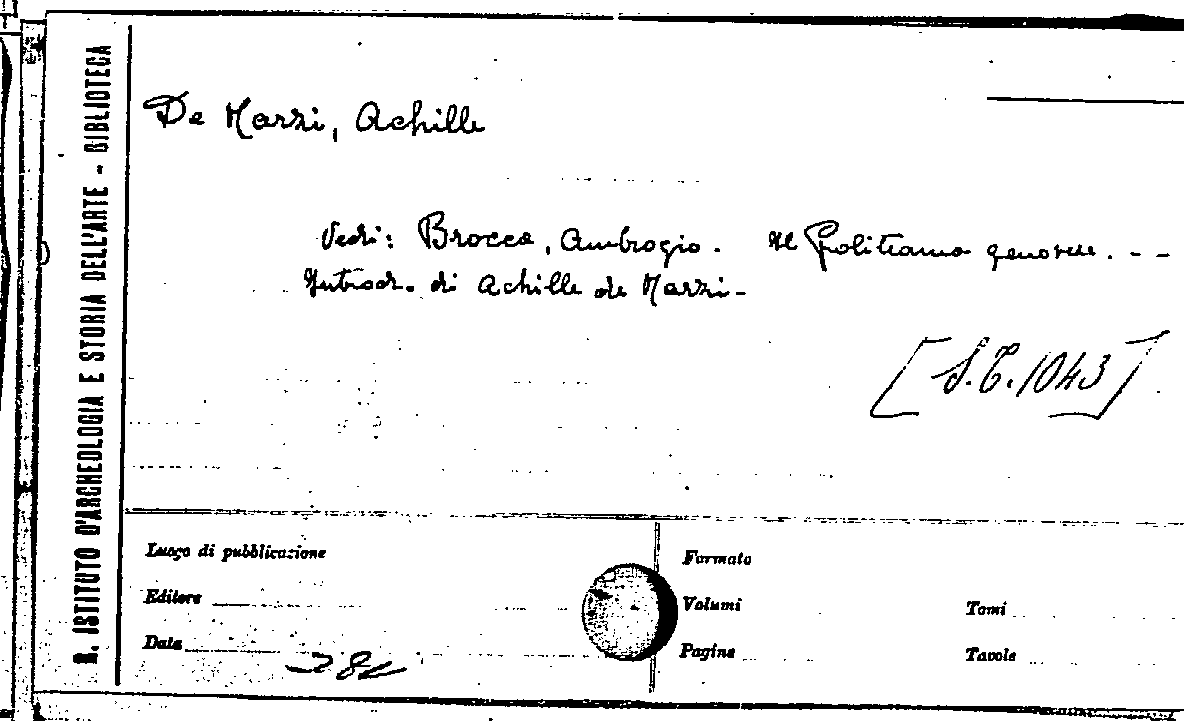 R. ISTITUTO D'ARCHEOLOGIA E STORIA DELL'ARTE - BIBLIOTECA
De Marzi, Achille
Vedi: Brocca, Ambrogio. Il Politeama genovese. - -
Introd. di Achille de Marzi -
[S.T. 1043]
Luogo di pubblicazione
Formato
Editore
Volumi
Tomi
Data
Pagine
Tavole